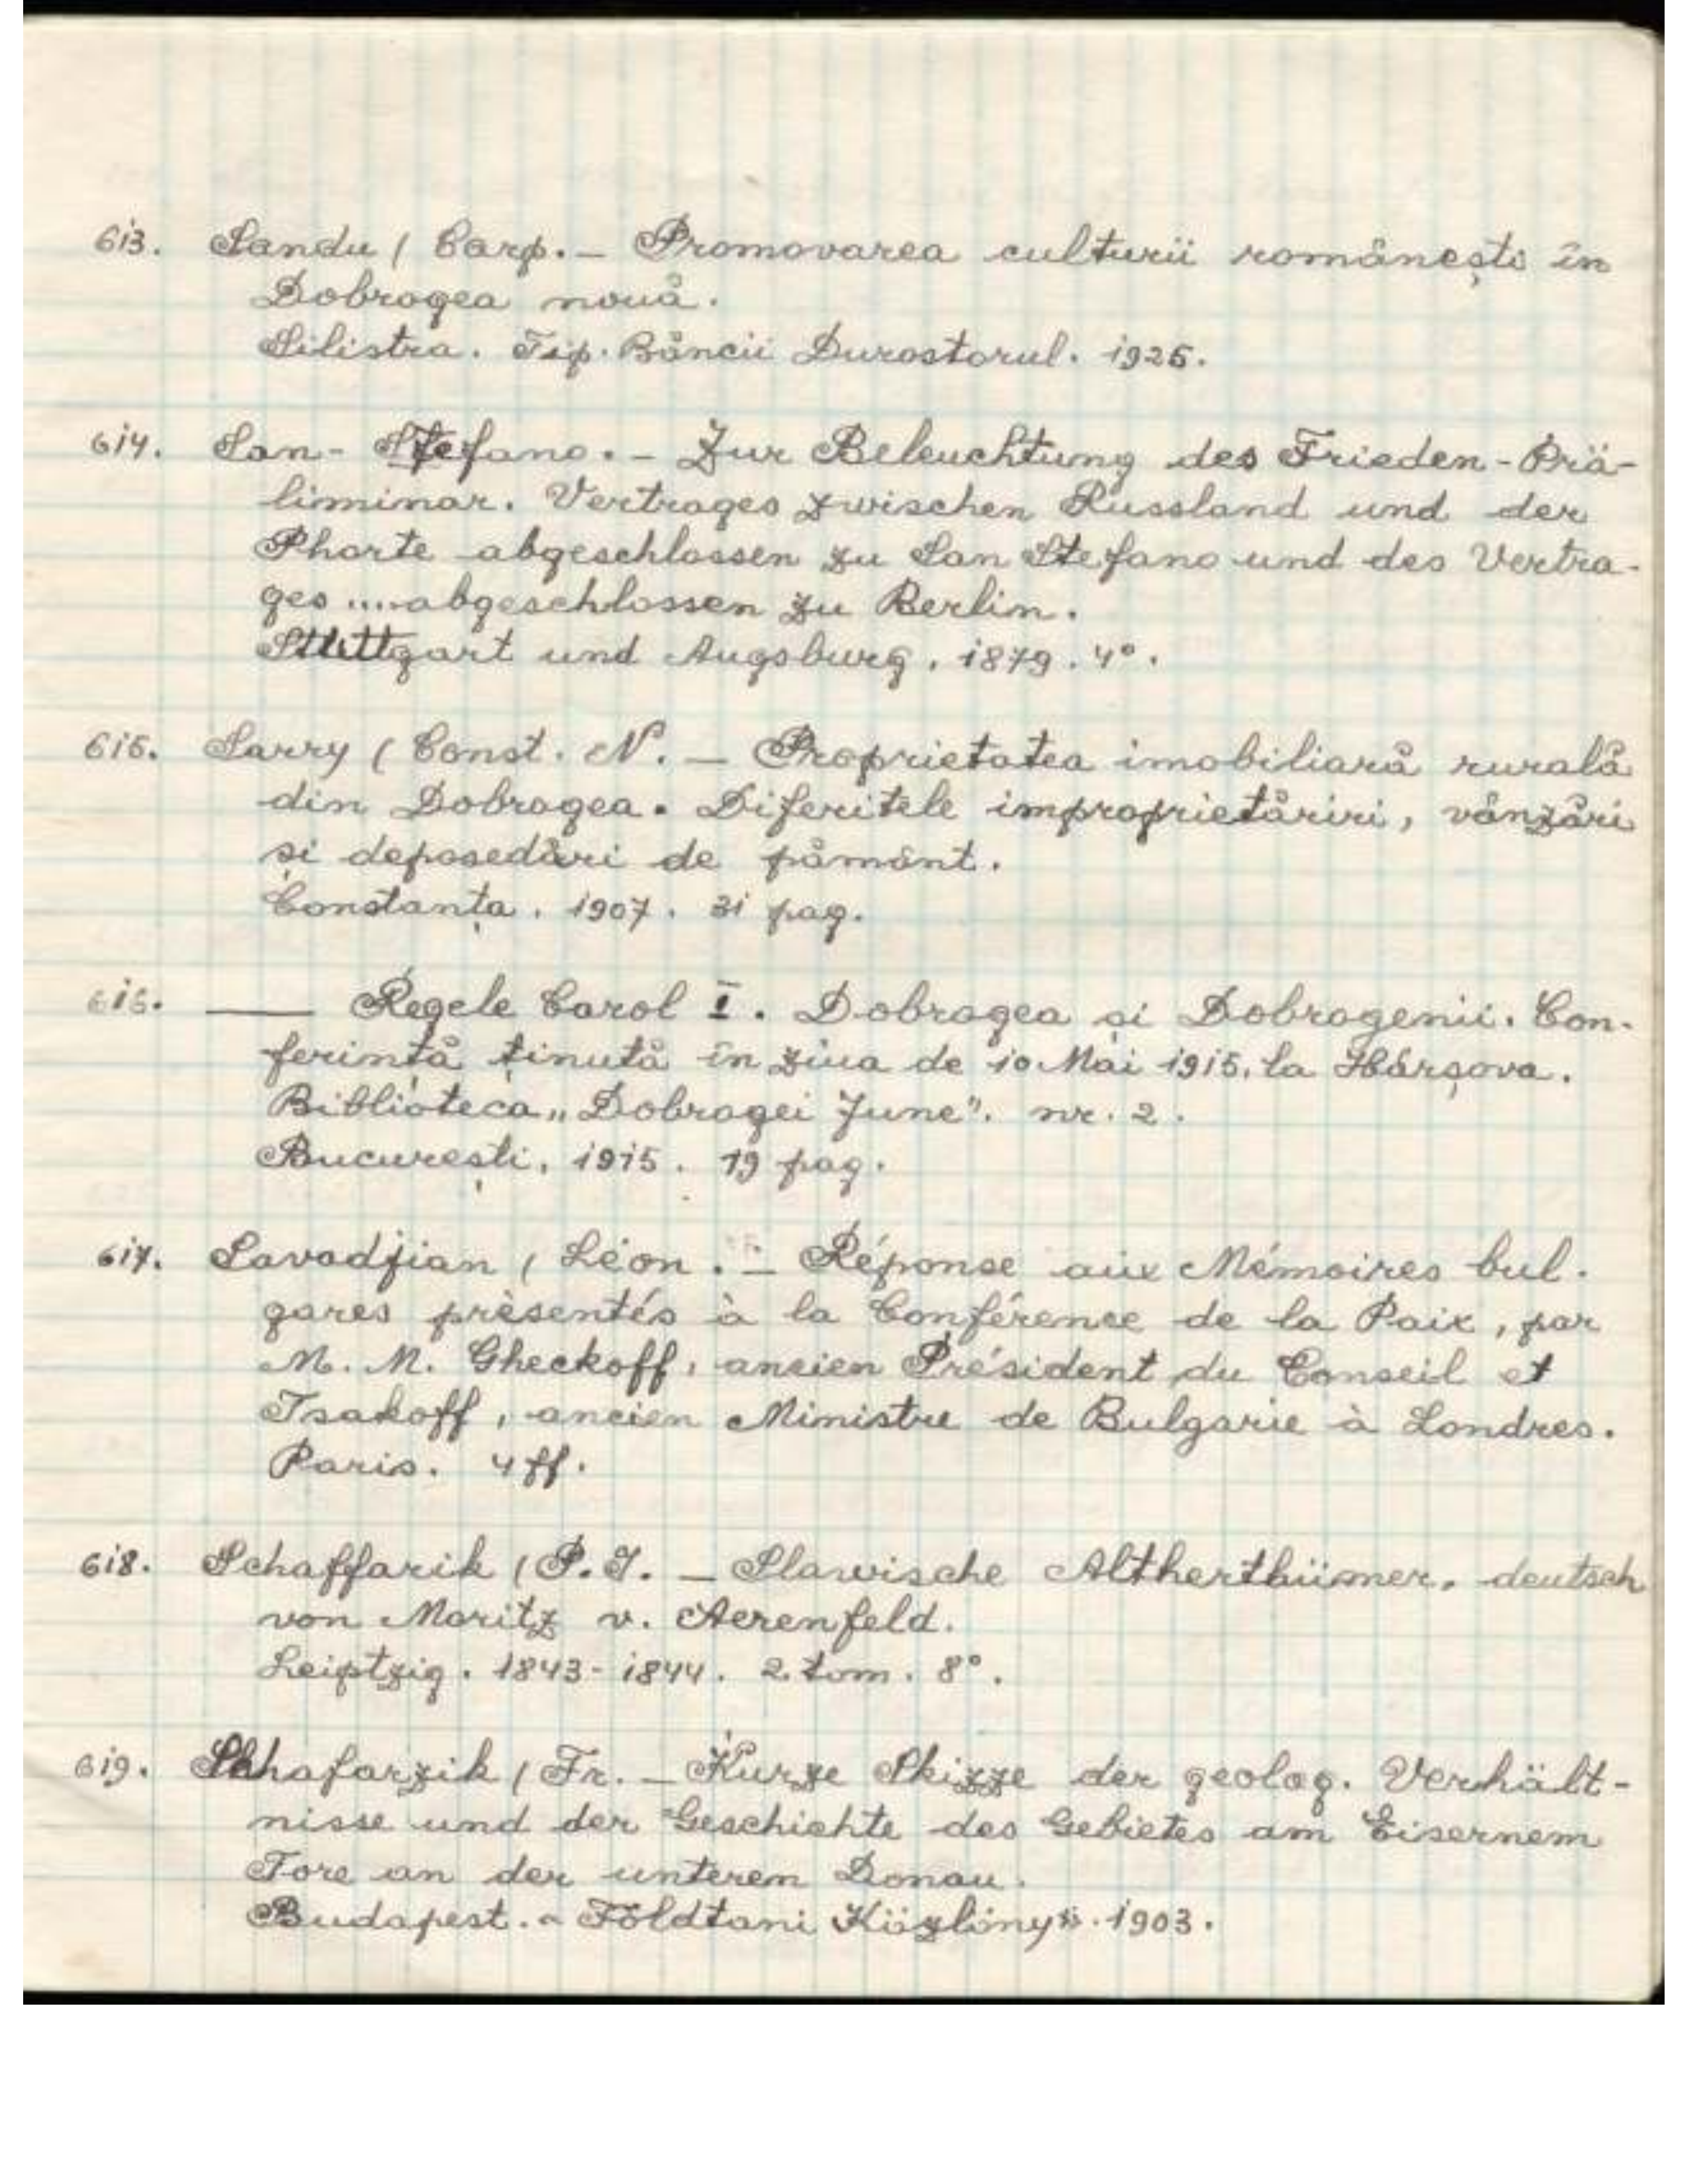 613. Sandu ( Carp. – Promovarea culturii românești în
Dobrogea nouă.
Silistra. Tip. Băncii Durostorul. 1925.
614. San-Stefano. – Zur Beleuchtung des Frieden-Prä-
liminar. Vertrages zwischen Russland und der
Phorte abgeschlossen zu San Stefano und des Vertra-
ges .... abgeschlossen zu Berlin.
Stuttgart und Augsburg. 1879. 4°.
615. Sarry ( Const. N. – Proprietatea imobiliară rurală
din Dobrogea. Diferitele improprietăriri, vânzări
și deposedări de pământ.
Constanța. 1907. 31 pag.
616. —— Regele Carol I. Dobrogea și Dobrogenii. Con-
ferință ținută în ziua de 10 Mai 1915, la Hârșova.
Biblioteca „Dobrogei June". nr. 2.
București, 1915. 19 pag.
617. Savadjian ( Léon. – Réponse aux Mémoires bul-
gares présentés à la Conférence de la Paix, par
M. M. Gheckoff, ancien Président du Conseil et
Tsakoff, ancien Ministre de Bulgarie à Londres.
Paris. 4 ff.
618. Schaffarik ( P. J. – Slawische Altherthümer, deutsch
von Moritz v. Aerenfeld.
Leiptzig. 1843-1844. 2 tom. 8°.
619. Schafarzik ( Fr. – Kurze Skizze der geolog. Verhält-
nisse und der Geschichte des Gebietes am Eisernem
Tore an der unterem Donau.
Budapest. „Földtani Közlöny". 1903.